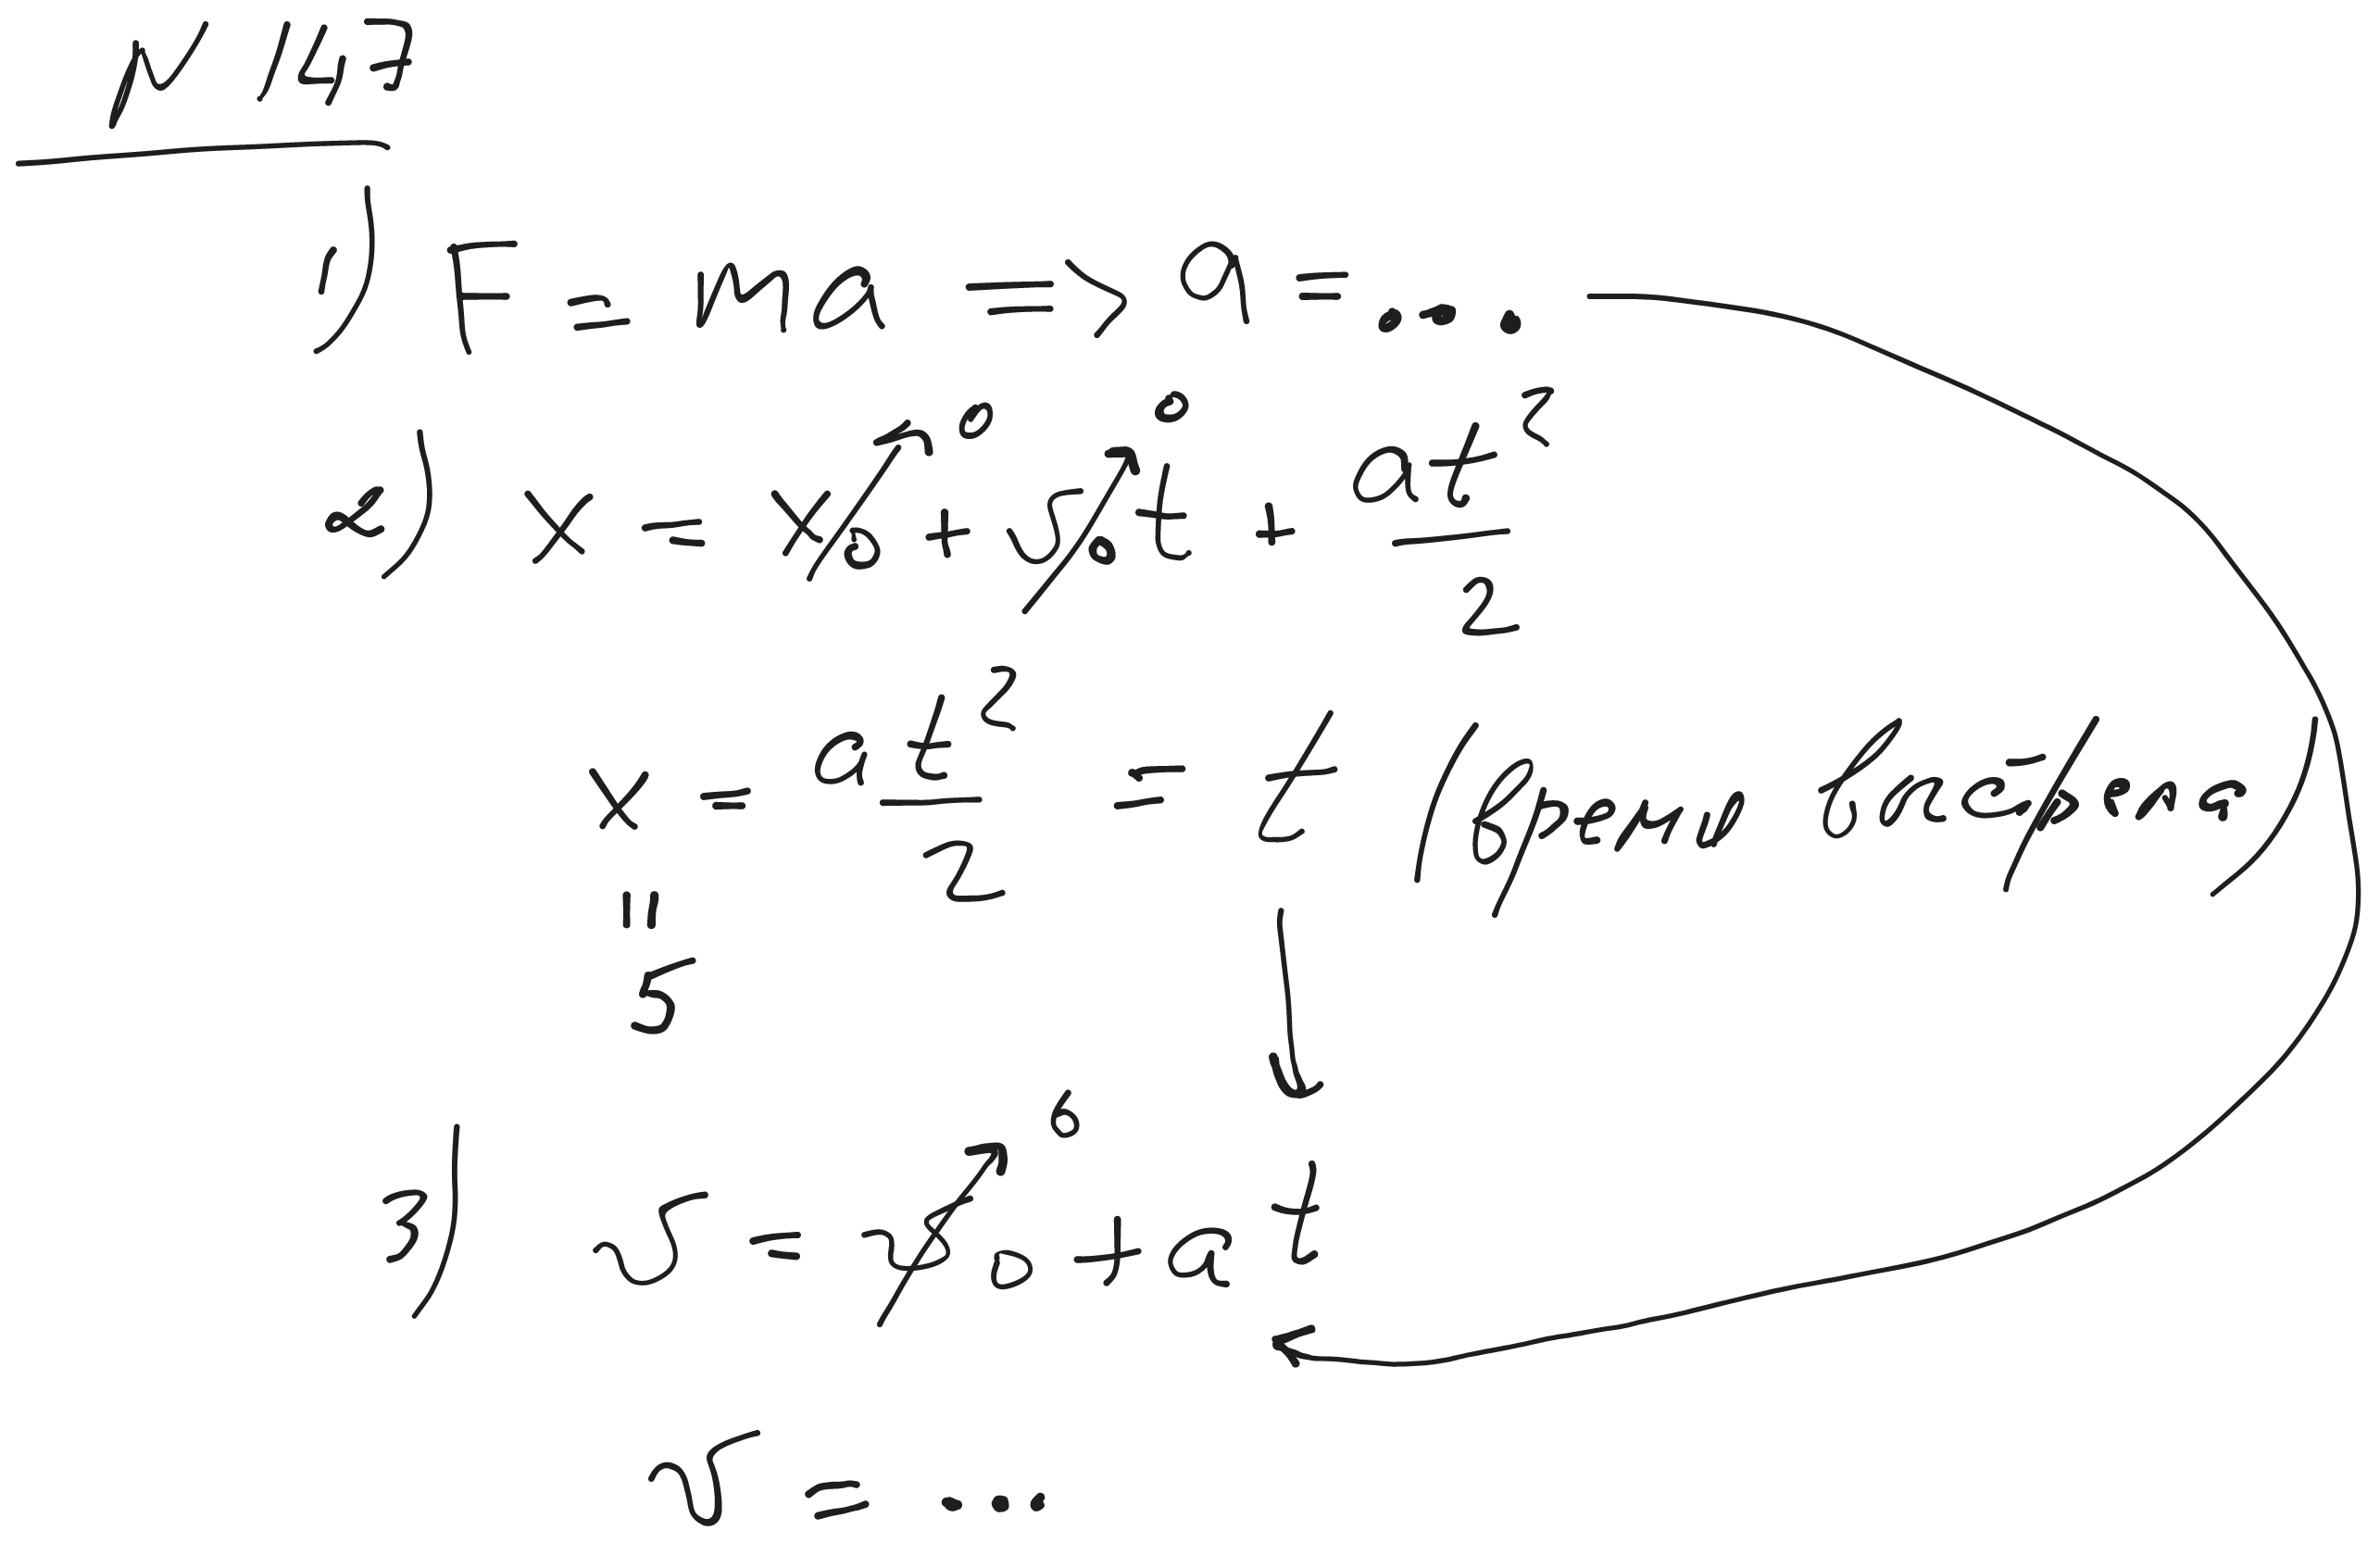 N 147
1) F = ma => a = ...
2) x = x₀ 0 + v₀ 0 t + at² / 2
x = at² / 2 = t (время выстрела)
=
5
3) v = v₀ 0 + at
v = ...